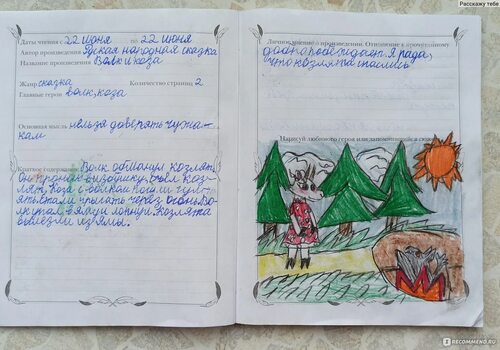 Расскажу тебе
Даты чтения с 22 июня по 22 июня
Автор произведения русская народная сказка
Название произведения Волк и коза
Жанр сказка Количество страниц 2
Главные герои волк, коза
Основная мысль нельзя доверять чужа-
кам
Краткое содержание Волк обманул козлят,
он
съел коз-
лят, коза с волком пошли гул-
ять, стали прыгать через
волк упал в яму и лопнул. Козлята
вылезли из ямы.
Личное мнение о произведении. Отношение к прочитанному
добро побеждает. Я рада,
что козлята спаслись
Нарисуй любимого героя или запомнившийся сюжет
IRECOMMEND.RU